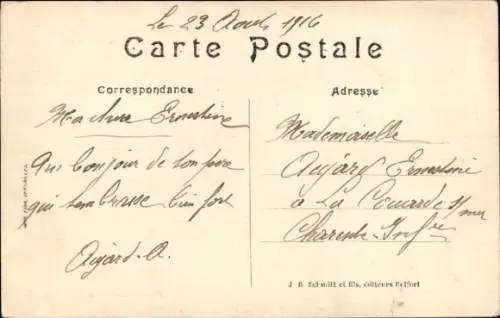 Le 23 Août 1916
Carte Postale
Correspondance
Adresse
Ma chère Ernestine
Un bonjour de ton père
qui t'embrasse bien fort
Aujard. A.
Mademoiselle
Aujard Ernestine
à La Couarde s/mer
Charente-Infre
J. B. Schmitt et fils, éditeurs Belfort